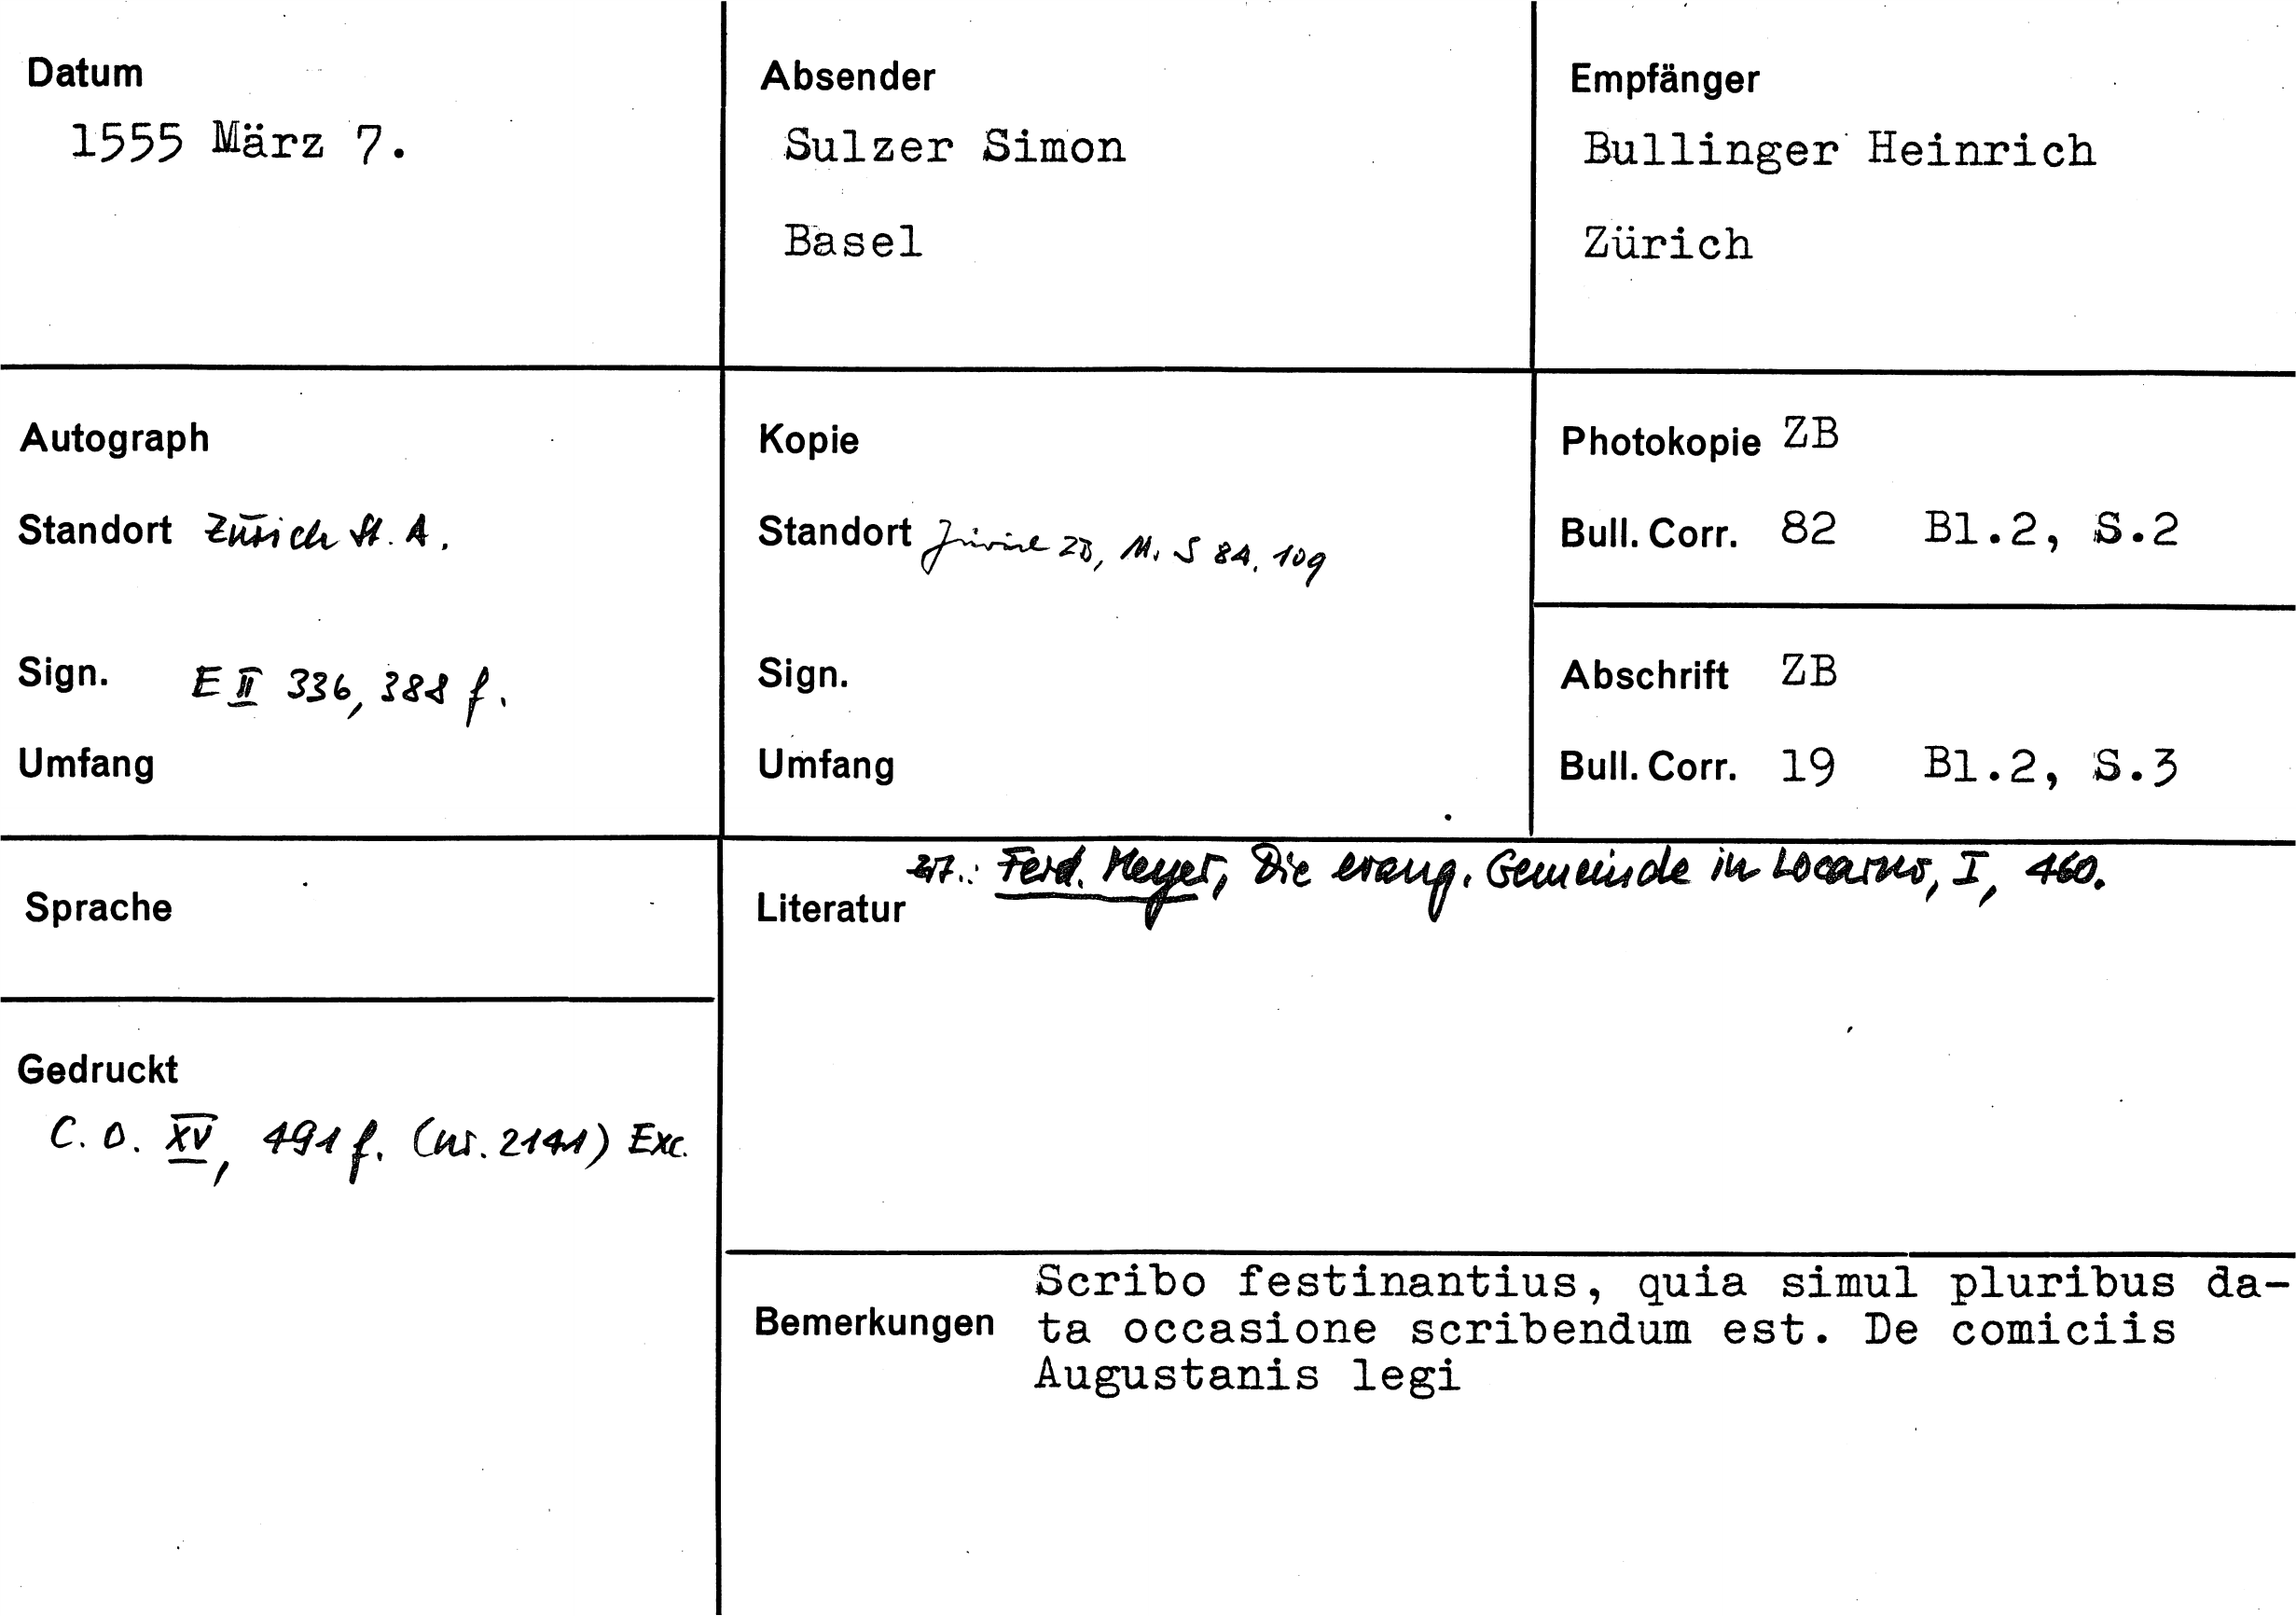 Datum
1555 März 7.
Absender
Sulzer Simon
Basel
Empfänger
Bullinger Heinrich
Zürich
Autograph
Standort Zürich St. A.
Sign. E II 336, 388 f.
Umfang
Kopie
Standort Zürich ZB, M. S 84, 109
Sign.
Umfang
Photokopie ZB
Bull. Corr. 82 Bl.2, S.2
Abschrift ZB
Bull. Corr. 19 Bl.2, S.3
Sprache
Gedruckt
C. O. XV, 491 f. (nr. 2141) Exc.
Literatur Ferd. Meyer, Die evang. Gemeinde in Locarno, I, 460.
Bemerkungen
Scribo festinantius, quia simul pluribus da-
ta occasione scribendum est. De comiciis
Augustanis legi